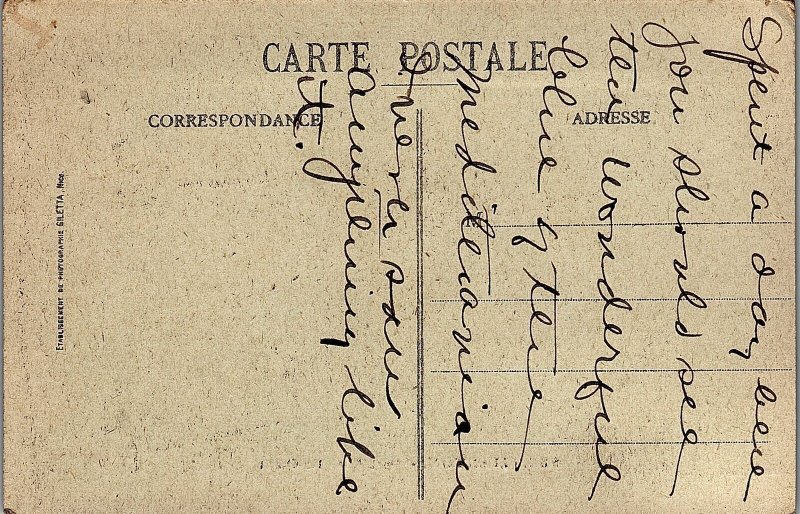 CARTE POSTALE
CORRESPONDANCE
ADRESSE
ETABLISSEMENT DE PHOTOGRAPHIE GILETTA, NICE
Spent a day here
You should see
the wonderful
blue of the
Mediteranian
I never saw
anything like
it.